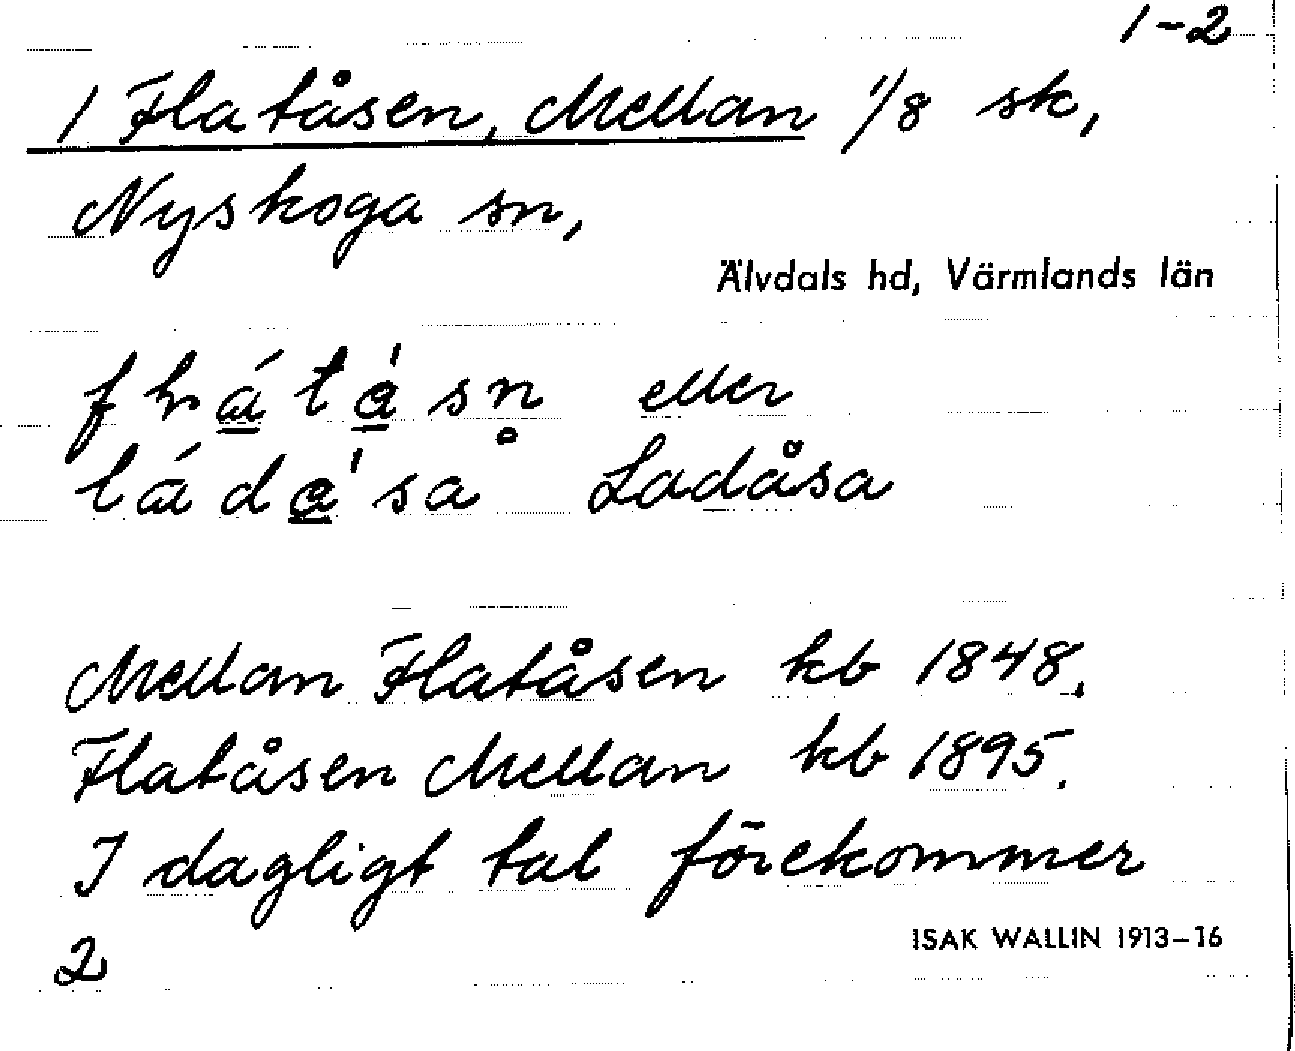 1-2
1 Flatåsen, Mellan 1/8 sk,
Nyskoga sn,
Älvdals hd, Värmlands län
eller
Ladåsa
Mellan Flatåsen kb 1848.
Flatåsen Mellan kb 1895.
I dagligt tal förekommer
ISAK WALLIN 1913-16
2